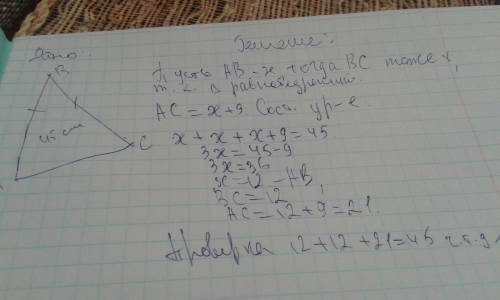 Дано. Решение.
B
Пусть AB - x, тогда BC тоже x,
т. к. Δ равнобедренный.
AC = x + 9. Сост. ур-е
C
45 см
x + x + x + 9 = 45
3x = 45 - 9
3x = 36
x = 12 - AB,
BC = 12
AC = 12 + 9 = 21
Проверка 12 + 12 + 21 = 45 ч.т.д